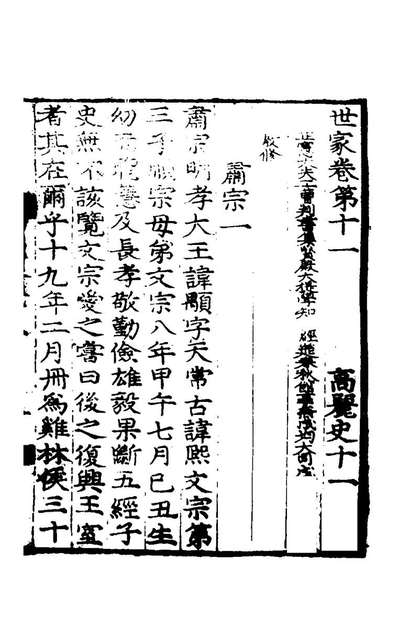 世家卷第十一　高麗史十一
正憲大夫工曹判書集賢殿大提學知　經筵春秋館事兼成均大司成
教修
肅宗一
肅宗明孝大王諱顒字天常古諱熙文宗第
三子順宗母弟文宗八年甲午七月己丑生
幼而聰慧及長孝敬勤儉雄毅果斷五經子
史無不該覽文宗愛之嘗曰後之復興王室
者其在爾乎十九年二月冊爲雞林侯三十